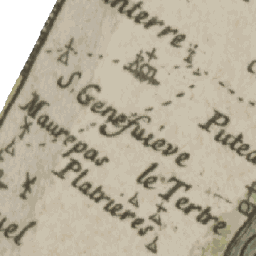 anterre
S Genefuieve
Putea
Maurepas
le Tertre
Platrieres
uel